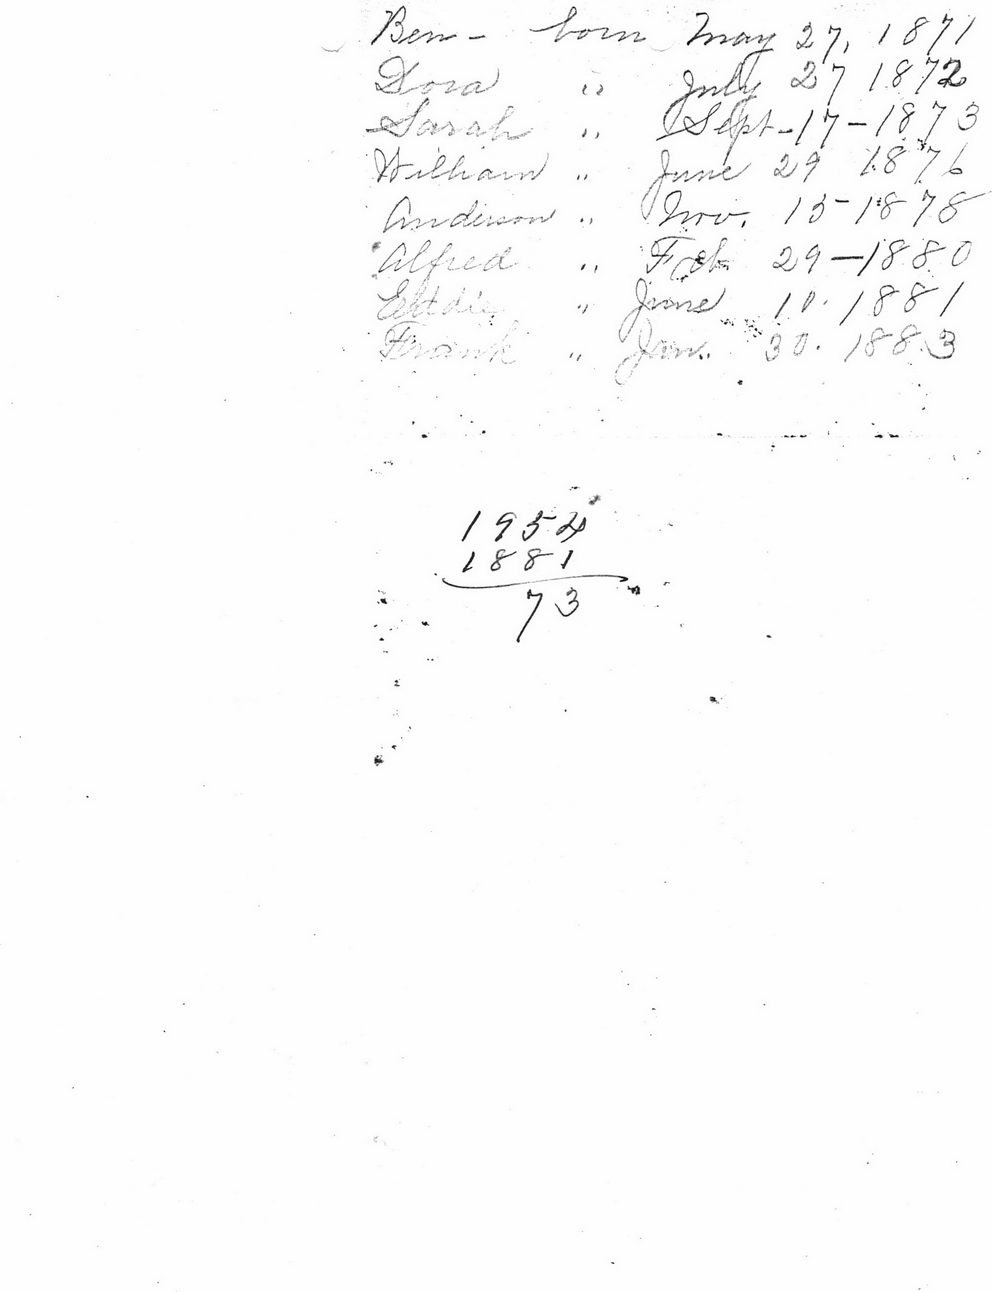 Ben - born May 27, 1871
Dora " July 27 1872
Sarah " Sept - 17 - 1873
William " June 29 1876
Anderson " Nov. 15 - 1878
Alfred " Feb 29 - 1880
" June 10. 1881
Frank " Jan. 30. 1883
1954
1881
73